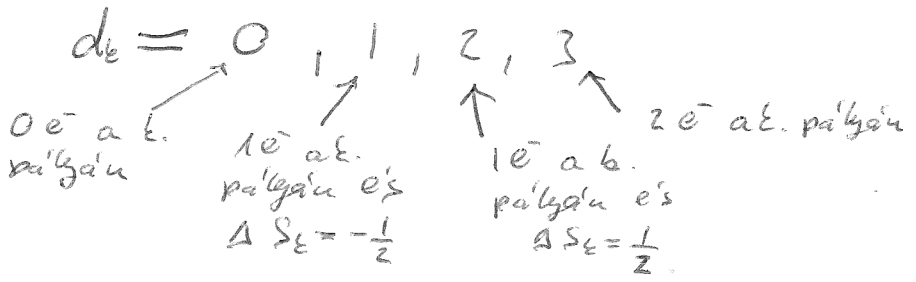 d_k = 0 , 1 , 2 , 3
0 e⁻ a k.
pályán
1 e⁻ a k.
pályán és
Δ S_k = -1/2
1 e⁻ a k.
pályán és
Δ S_k = 1/2
2 e⁻ a k. pályán